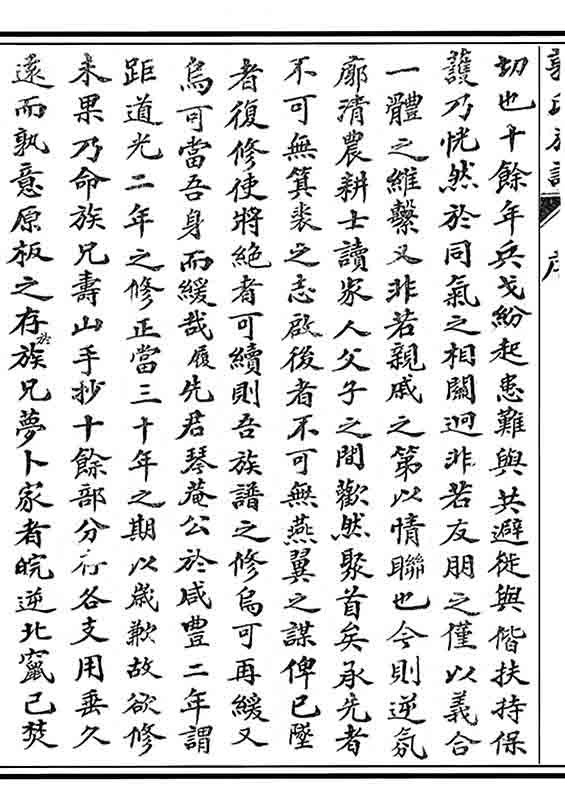 郭氏族譜 序
切也十餘年兵戈紛起患難與共避徙與偕扶持保
護乃恍然於同氣之相關迥非若友朋之僅以義合
一體之維繫又非若親戚之第以情聯也今則逆氛
廓清農耕士讀家人父子之間歡然聚首矣承先者
不可無箕裘之志啟後者不可無燕翼之謀俾已墜
者復修使將絕者可續則吾族譜之修烏可再緩又
烏可當吾身而緩哉履先君琴菴公於咸豐二年謂
距道光二年之修正當三十年之期以歲歉故欲修
未果乃命族兄壽山手抄十餘部分存各支用垂久
遠而孰意原板之存於族兄夢卜家者皖逆北竄已焚